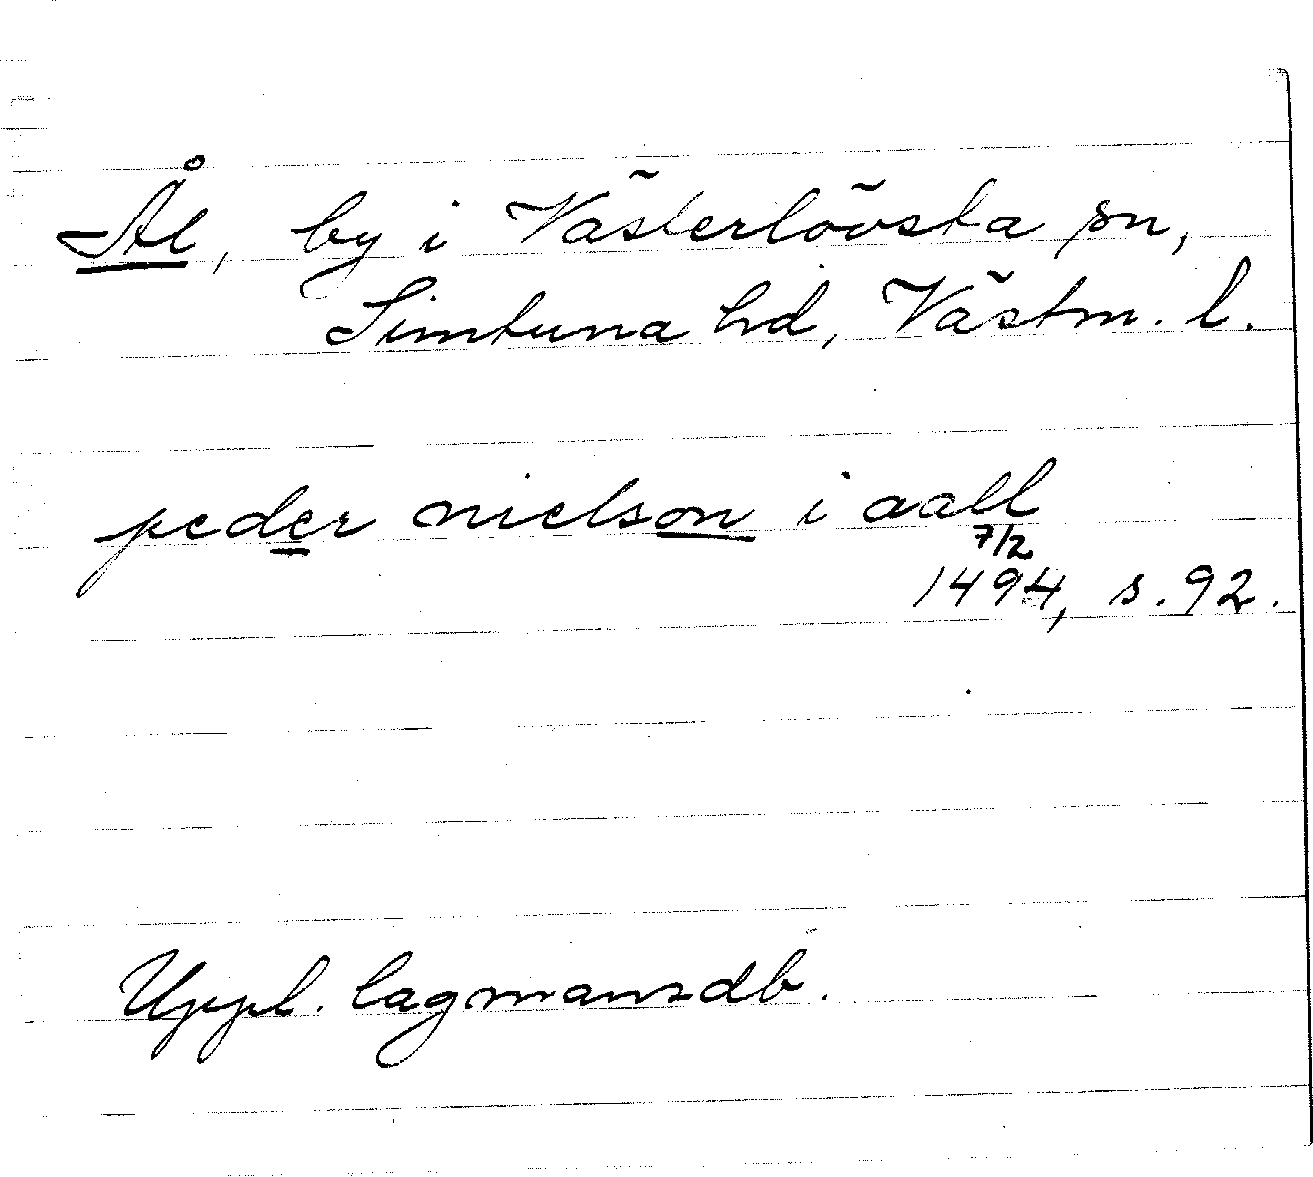 Ål, by i Västerlövsta sn,
Simtuna hd, Västm. l.
peder nielson i aall
7/2
1494, s. 92.
Uppl. lagmansdb.